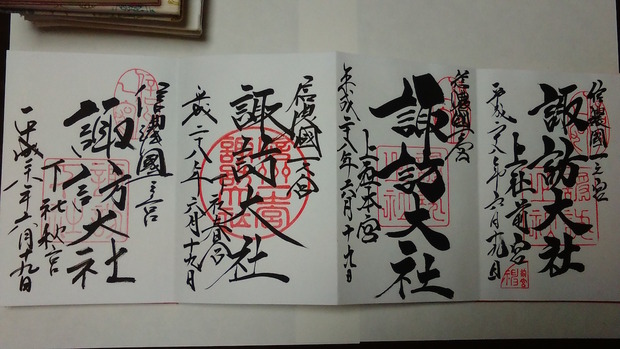 信濃國一之宮
諏訪大社
上社前宮
平成二十八年六月十九日
信濃國一宮
諏訪大社
上社本宮
平成二十八年六月十九日
信濃國一宮
諏訪大社
下社春宮
平成二十八年六月十九日
信濃國一之宮
諏訪大社
下社秋宮
平成二十八年六月十九日